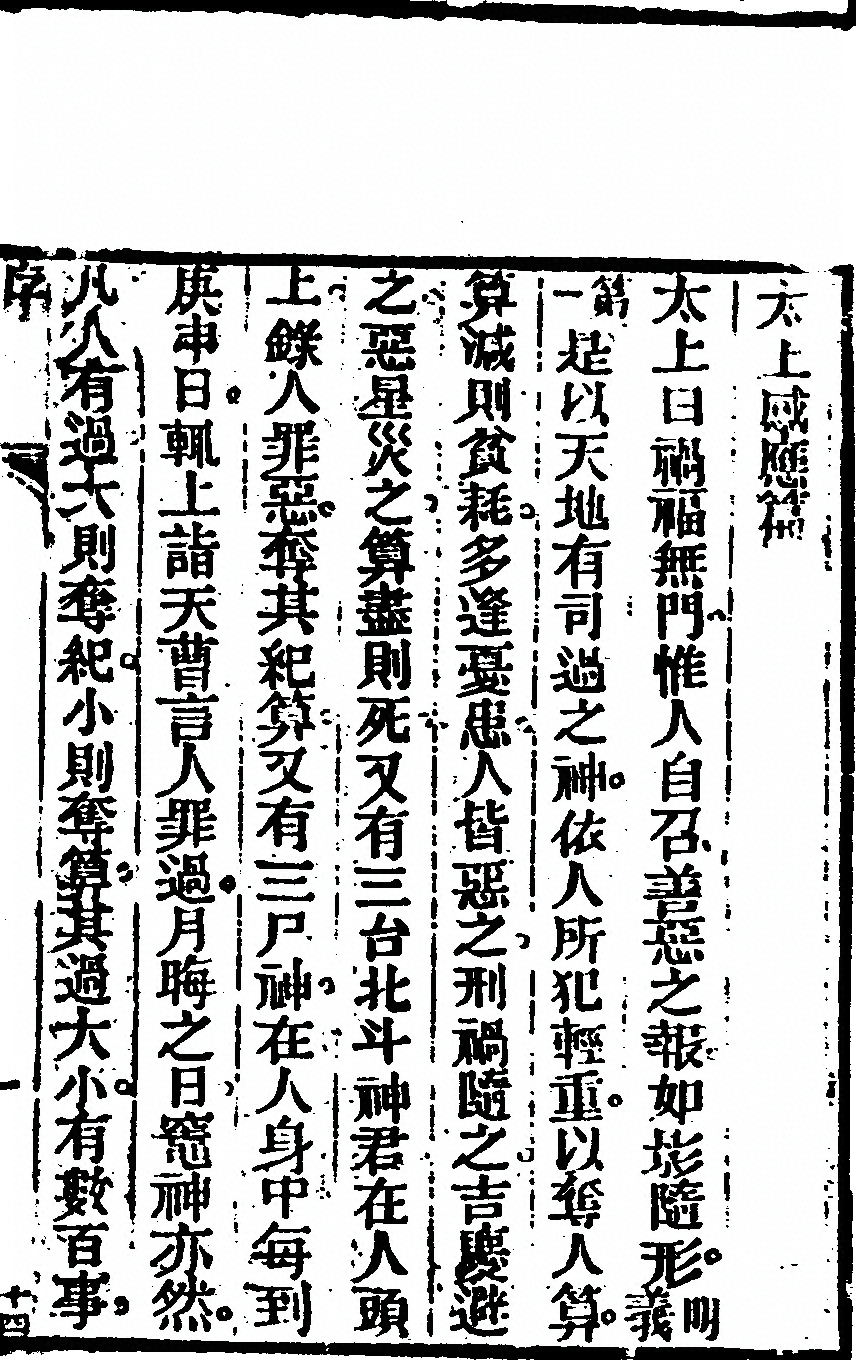 太上感應篇
太上曰禍福無門惟人自召善惡之報如影隨形。明義
第一是以天地有司過之神。依人所犯輕重。以奪人算。
算減則貧耗。多逢憂患人皆惡之刑禍隨之吉慶避
之惡星災之算盡則死又有三台北斗神君在人頭
上錄人罪惡。奪其紀算又有三尸神在人身中每到
庚申日。輒上詣天曹言人罪過。月晦之日竈神亦然。
凡人有過大則奪紀。小則奪算。其過大小。有數百事。
序
一
十四